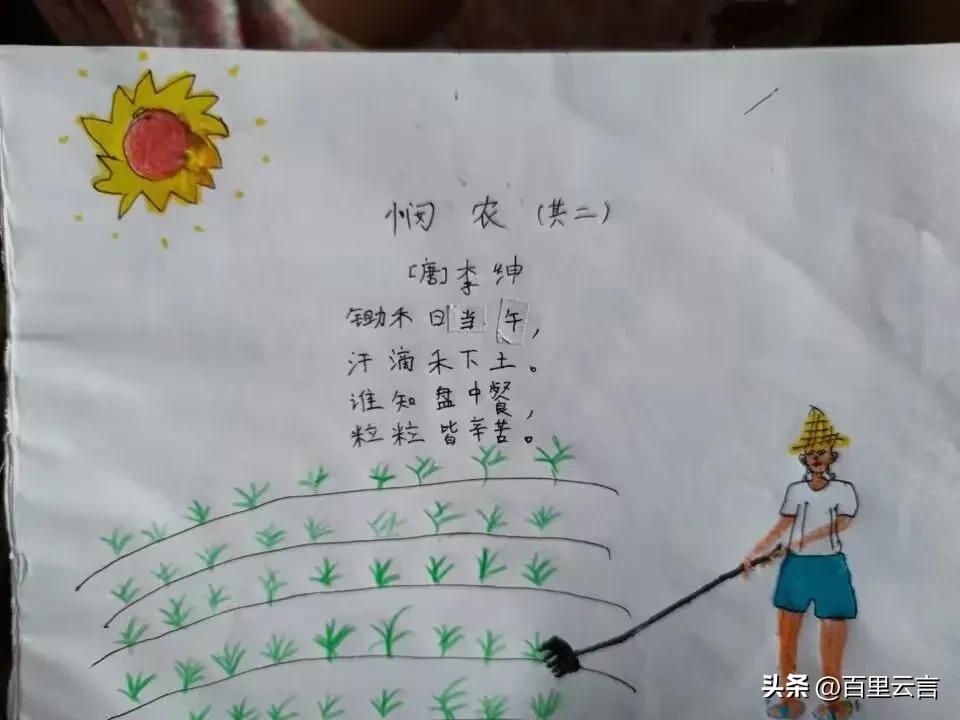 悯农(其二)
[唐]李绅
锄禾日当午,
汗滴禾下土。
谁知盘中餐,
粒粒皆辛苦。
头条 @百里云言